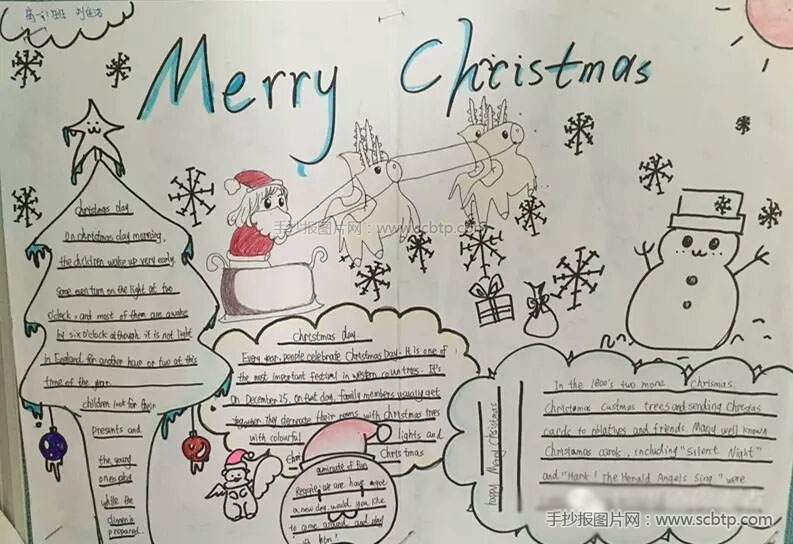 Merry Christmas
手抄报图片网：www.scbtp.com
Christmas day
On christmas day morning,
the children wake up very early.
Some even turn on the light at two
O'clock, and most of them are awake
by six O'clock although it is not light
in England for another hour or two at this
time of the year.
children look for their
presents and
the young
ones play
while the
dinner is
prepared.
Christmas day
Every year, people celebrate Christmas Day. It is one of
the most important festival in western countries. It's
On December 25. On that day, family members usually get
together They decorate their rooms with Christmas trees
with colourful lights and
Christmas
a minute of fun
we are have
a new dog. would you like
to come around and play
with him!
happy Merry Christmas
In the 1800's two more Christmas
Christmas Custmas trees and sending Christmas
cards to relatives and friends. Many well known
Christmas carols, including "Silent Night"
and "Hark! The Herald Angels Sing," were
手抄报图片网：www.scbtp.com